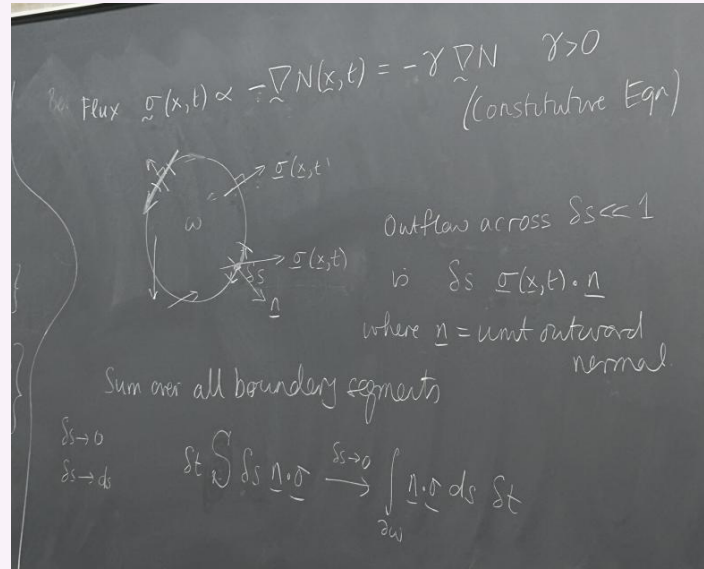 Flux σ(x,t) ∝ -∇N(x,t) = -γ∇N γ>0
(Constitutive Eqn)
σ(x,t)
ω
σ(x,t)
δs
n
Outflow across δs<<1
is δs σ(x,t)·n
where n = unit outward
normal
Sum over all boundary segments
δs→0
δs→ds
δt ∑ δs n·σ δs→0 → ∫∂ω n·σ ds δt